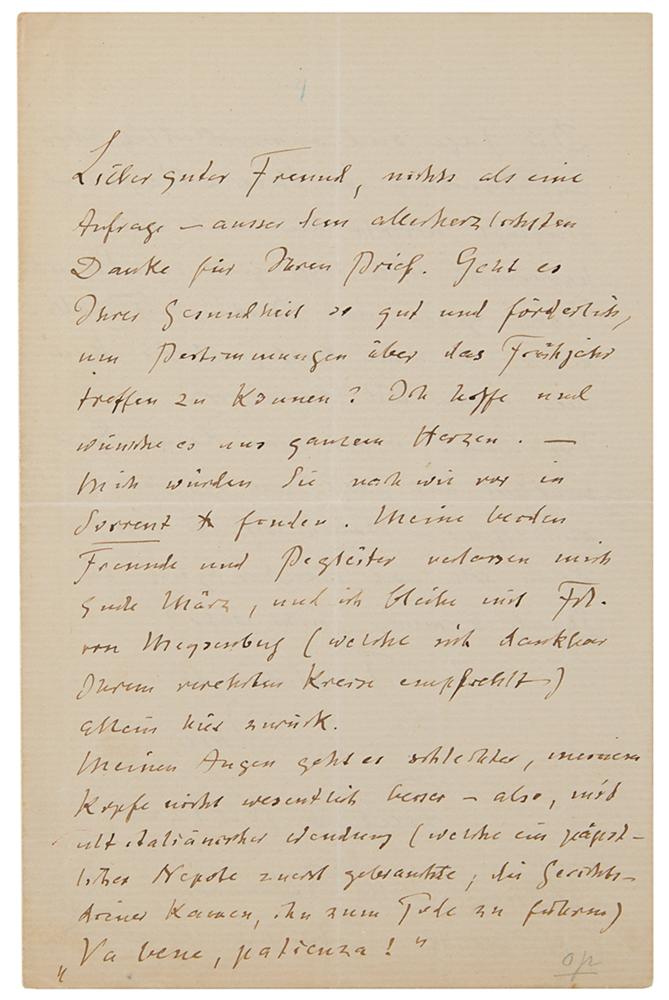 Lieber guter Freund, nichts als eine
Anfrage — ausser dem allerherzlichsten
Danke für Ihren Brief. Geht es
Ihrer Gesundheit so gut und förderlich,
um Bestimmungen über das Frühjahr
treffen zu können? Ich hoffe und
wünsche es aus ganzem Herzen. —
Mich würden Sie nach wie vor in
Sorrent finden. Meine beiden
Freunde und Begleiter verlassen mich
Ende März, und ich bleibe mit Frl.
von Meysenbug (welche sich dankbar
Ihrem verehrten Kreise empfiehlt)
allein hier zurück.
Meinen Augen geht es schlechter, meinem
Kopfe nicht wesentlich besser — also, mit
alt italiänischer Wendung (welche ein päpst-
licher Nepote zuerst gebrauchte, die Gerichts-
diener kamen, ihn zum Tode zu führen)
"Va bene, patienza!"